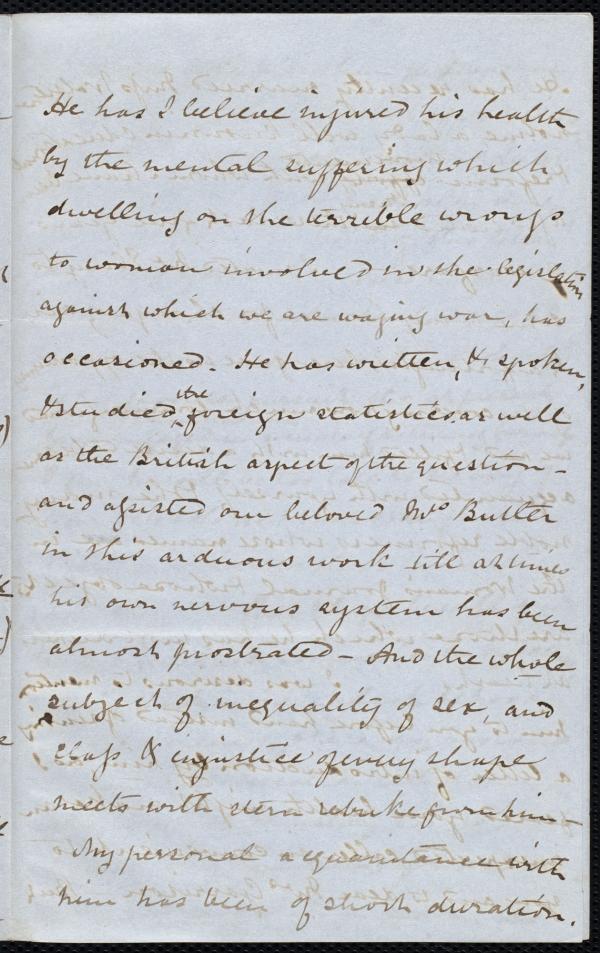 He has I believe injured his health
by the mental suffering which
dwelling on the terrible wrongs
to woman involved in the legislation
against which we are waging war, has
occasioned. He has written, & spoken,
& studied the foreign statistics as well
as the British aspect of the question -
and assisted our beloved Mrs Butler
in this arduous work till at times
his own nervous system has been
almost prostrated - And the whole
subject of inequality of sex, and
class & injustice of every shape
meets with stern rebuke from him -
My personal acquaintance with
him has been of short duration.